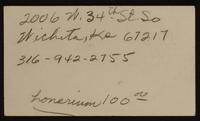 2006 W. 34th St So
Wichita, Ks 67217
316-942-2755
honorium 100 00